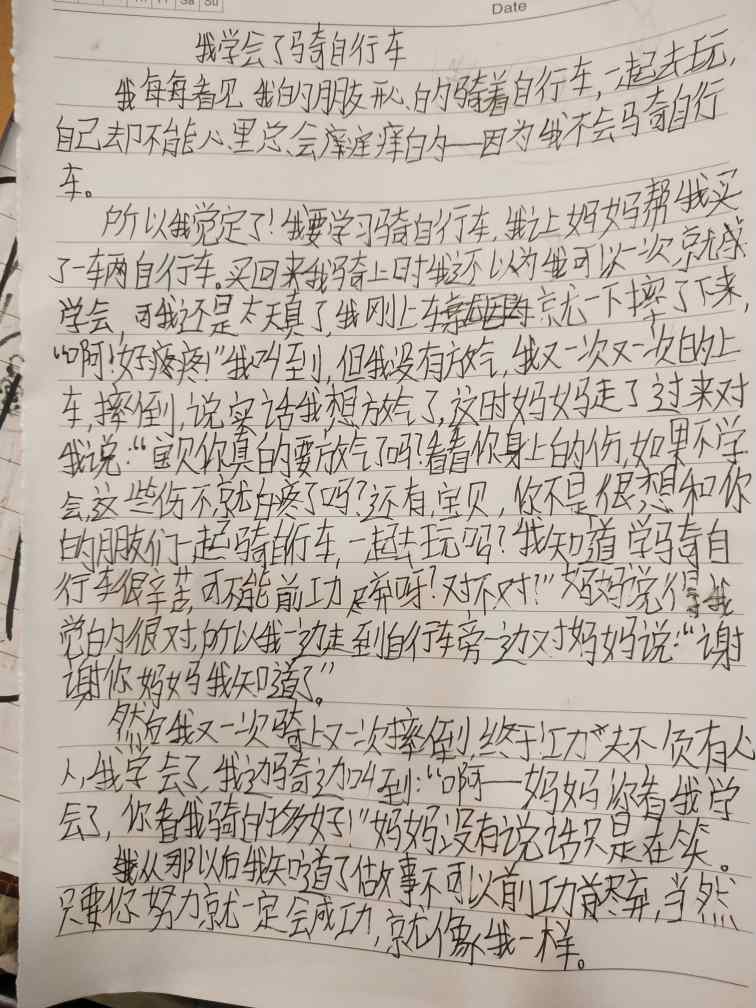 Sa Su
Date
我学会了骑自行车
我每每看见我的朋友开心的骑着自行车,一起去玩,
自己却不能心里总会痒痒痒的——因为我不会骑自行
车。
所以我觉定了!我要学习骑自行车,我让妈妈帮我买
了一车两自行车。买回来我骑上时我还以为我可以一次就成
学会,可我还是太天真了,我刚上车就一下摔了下来,
“啊!好疼疼!”我叫到,但我没有放气,我又一次又一次的上
车,摔倒,说实话我想放气了,这时妈妈走了过来对
我说:“宝贝你真的要放气了吗?看看你身上的伤,如果不学
会,这些伤不就白疼了吗?还有,宝贝,你不是很想和你
的朋友们一起骑自行车,一起去玩吗?我知道学骑自
行车很辛苦,可不能前功尽弃呀?对不对!”妈妈觉得我
觉的很对,所以我一边走到自行车旁一边对妈妈说:“谢
谢你妈妈我知道了。”
然后我又一次骑上又一次摔倒,终于“功”夫不负有心
人,我学会了,我边骑边叫到:“啊——妈妈你看我学
会了,你看我骑的多好!”妈妈没有说话只是在笑。
我从那以后我知道了做事不可以前功尽弃,当然
只要你努力就一定会成功,就像我一样。